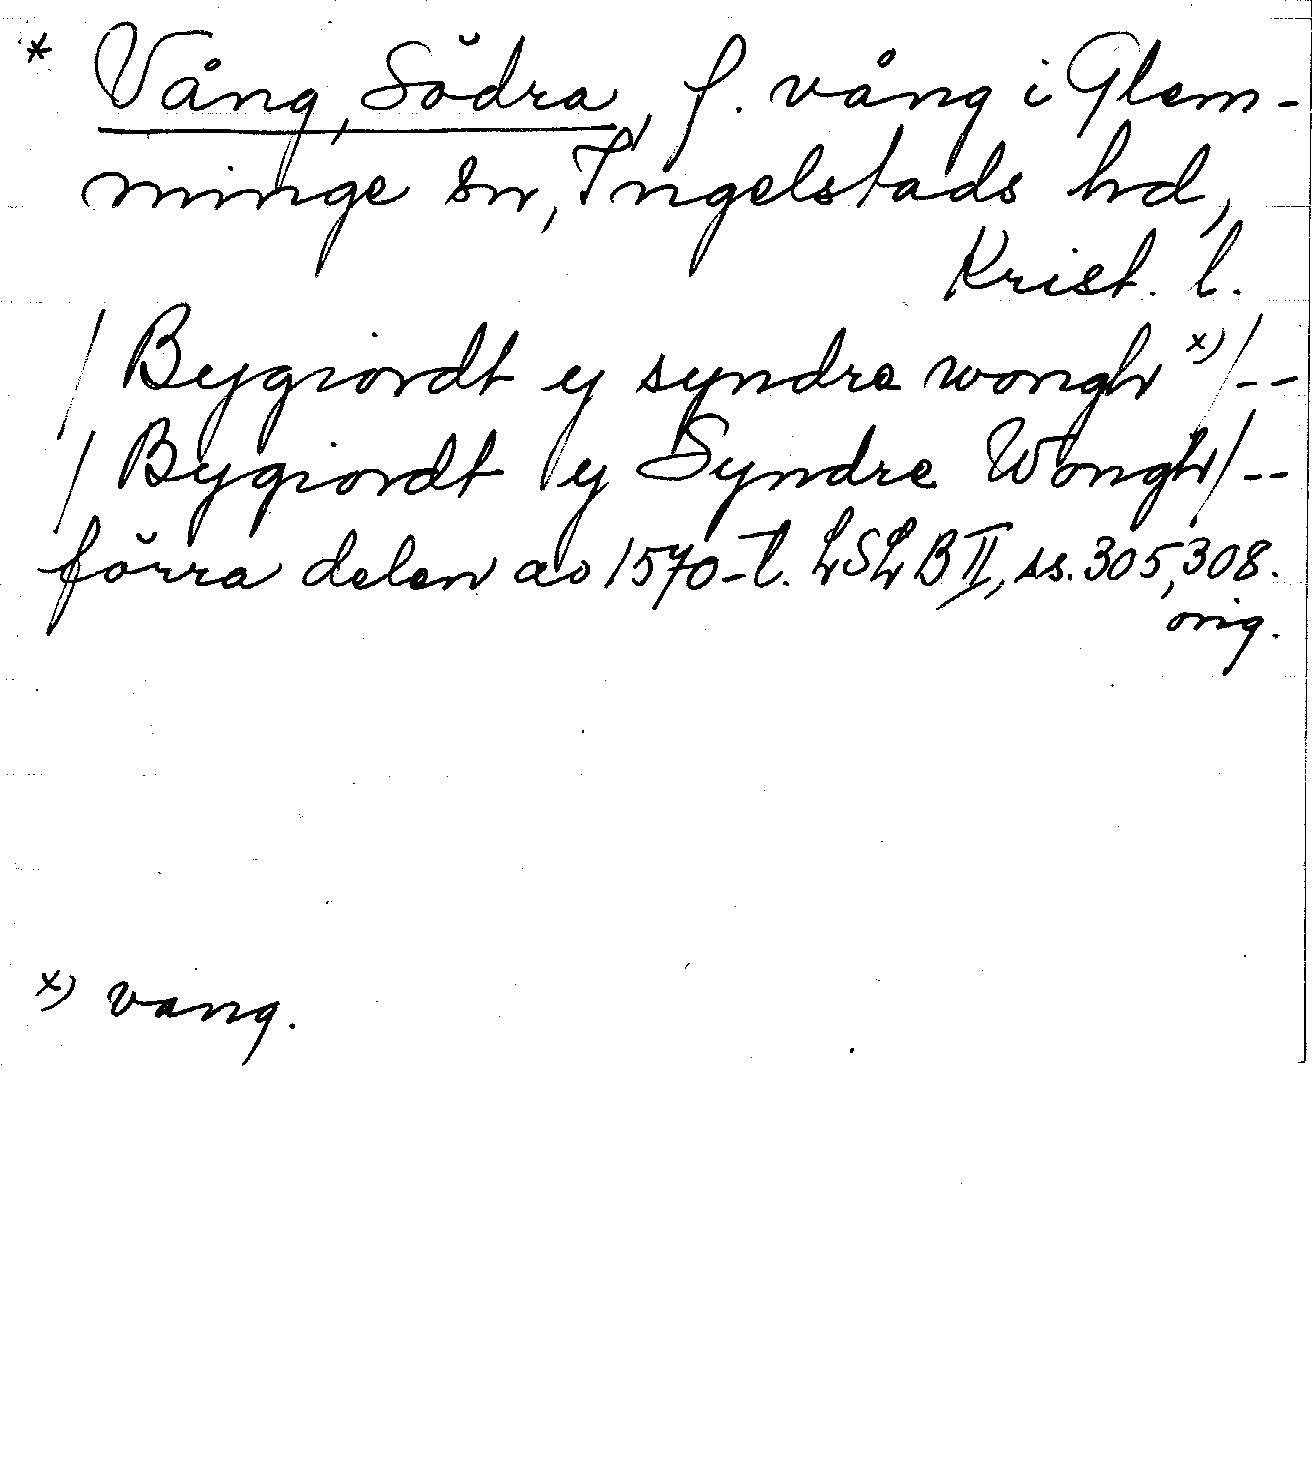 * Vång, Södra, f. vång i Glem-
minge sn, Ingelstads hd,
Krist. l.
/ Bygiordt ey syndre wongh x) / --
/ Bygiordt ey Syndre Wongh / --
förra delen av 1570-t. LSLB II, ss. 305, 308.
orig.
x) vang.